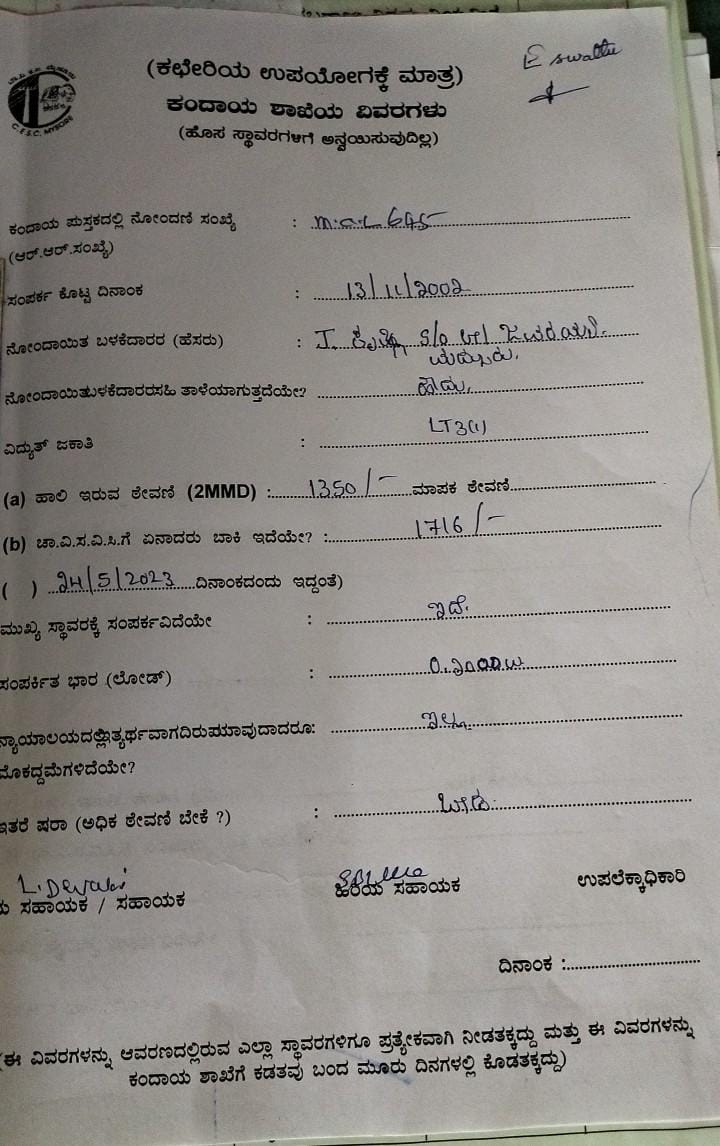 C.E.S.C. MYSORE
Eswattu
(ಕಛೇರಿಯ ಉಪಯೋಗಕ್ಕೆ ಮಾತ್ರ)
ಕಂದಾಯ ಶಾಖೆಯ ವಿವರಗಳು
(ಹೊಸ ಸ್ಥಾವರಗಳಿಗೆ ಅನ್ವಯಿಸುವುದಿಲ್ಲ)
ಕಂದಾಯ ಪುಸ್ತಕದಲ್ಲಿ ನೋಂದಣಿ ಸಂಖ್ಯೆ : m.a.L 645
(ಆರ್.ಆರ್.ಸಂಖ್ಯೆ)
ಸಂಪರ್ಕ ಕೊಟ್ಟ ದಿನಾಂಕ : 13/11/2002
ನೋಂದಾಯಿತ ಬಳಕೆದಾರರ (ಹೆಸರು) : J. ಕೃಷ್ಣ S/o
ನೋಂದಾಯಿತಬಳಕೆದಾರರಸಹಿ ತಾಳೆಯಾಗುತ್ತದೆಯೇ? ಹೌದು,
ವಿದ್ಯುತ್ ಜಕಾತಿ : LT3(1)
(a) ಹಾಲಿ ಇರುವ ಠೇವಣಿ (2MMD) : 1350/- ಮಾಪಕ ಠೇವಣಿ
(b) ಚಾ.ವಿ.ಸ.ವಿ.ಸಿ.ಗೆ ಏನಾದರು ಬಾಕಿ ಇದೆಯೇ? : 1716/-
( ) 24/5/2023 ದಿನಾಂಕದಂದು ಇದ್ದಂತೆ)
ಮುಖ್ಯ ಸ್ಥಾವರಕ್ಕೆ ಸಂಪರ್ಕವಿದೆಯೇ : ಇದೆ.
ಸಂಪರ್ಕಿತ ಭಾರ (ಲೋಡ್) :
ನ್ಯಾಯಾಲಯದಲ್ಲಿತ್ಯರ್ಥವಾಗದಿರುವಯಾವುದಾದರೂ: ಇಲ್ಲ
ಮೊಕದ್ದಮೆಗಳಿದೆಯೇ?
ಇತರೆ ಷರಾ (ಅಧಿಕ ಠೇವಣಿ ಬೇಕೆ ?) : ಬೇಡ.
L.Devaki
ಸಹಾಯಕ / ಸಹಾಯಕ ಹಿರಿಯ ಸಹಾಯಕ ಉಪಲೆಕ್ಕಾಧಿಕಾರಿ
ದಿನಾಂಕ :
(ಈ ವಿವರಗಳನ್ನು ಆವರಣದಲ್ಲಿರುವ ಎಲ್ಲಾ ಸ್ಥಾವರಗಳಿಗೂ ಪ್ರತ್ಯೇಕವಾಗಿ ನೀಡತಕ್ಕದ್ದು ಮತ್ತು ಈ ವಿವರಗಳನ್ನು
ಕಂದಾಯ ಶಾಖೆಗೆ ಕಡತವು ಬಂದ ಮೂರು ದಿನಗಳಲ್ಲಿ ಕೊಡತಕ್ಕದ್ದು)